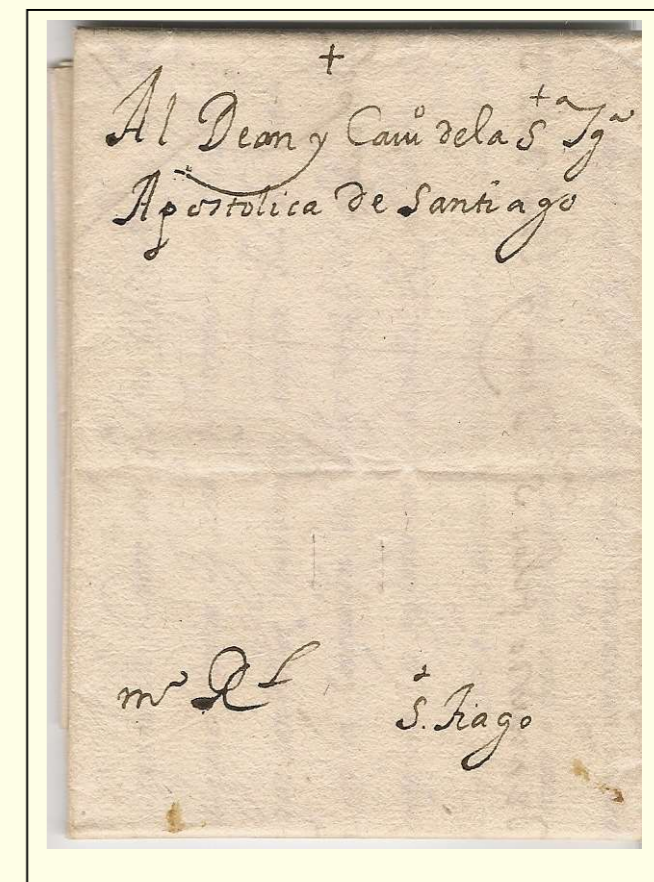 +
Al Dean y Cavᵒ dela S⁺ᵃ Igᵃ
Apostolica de Santiago
mᵒ Rˡ
S. Tiago